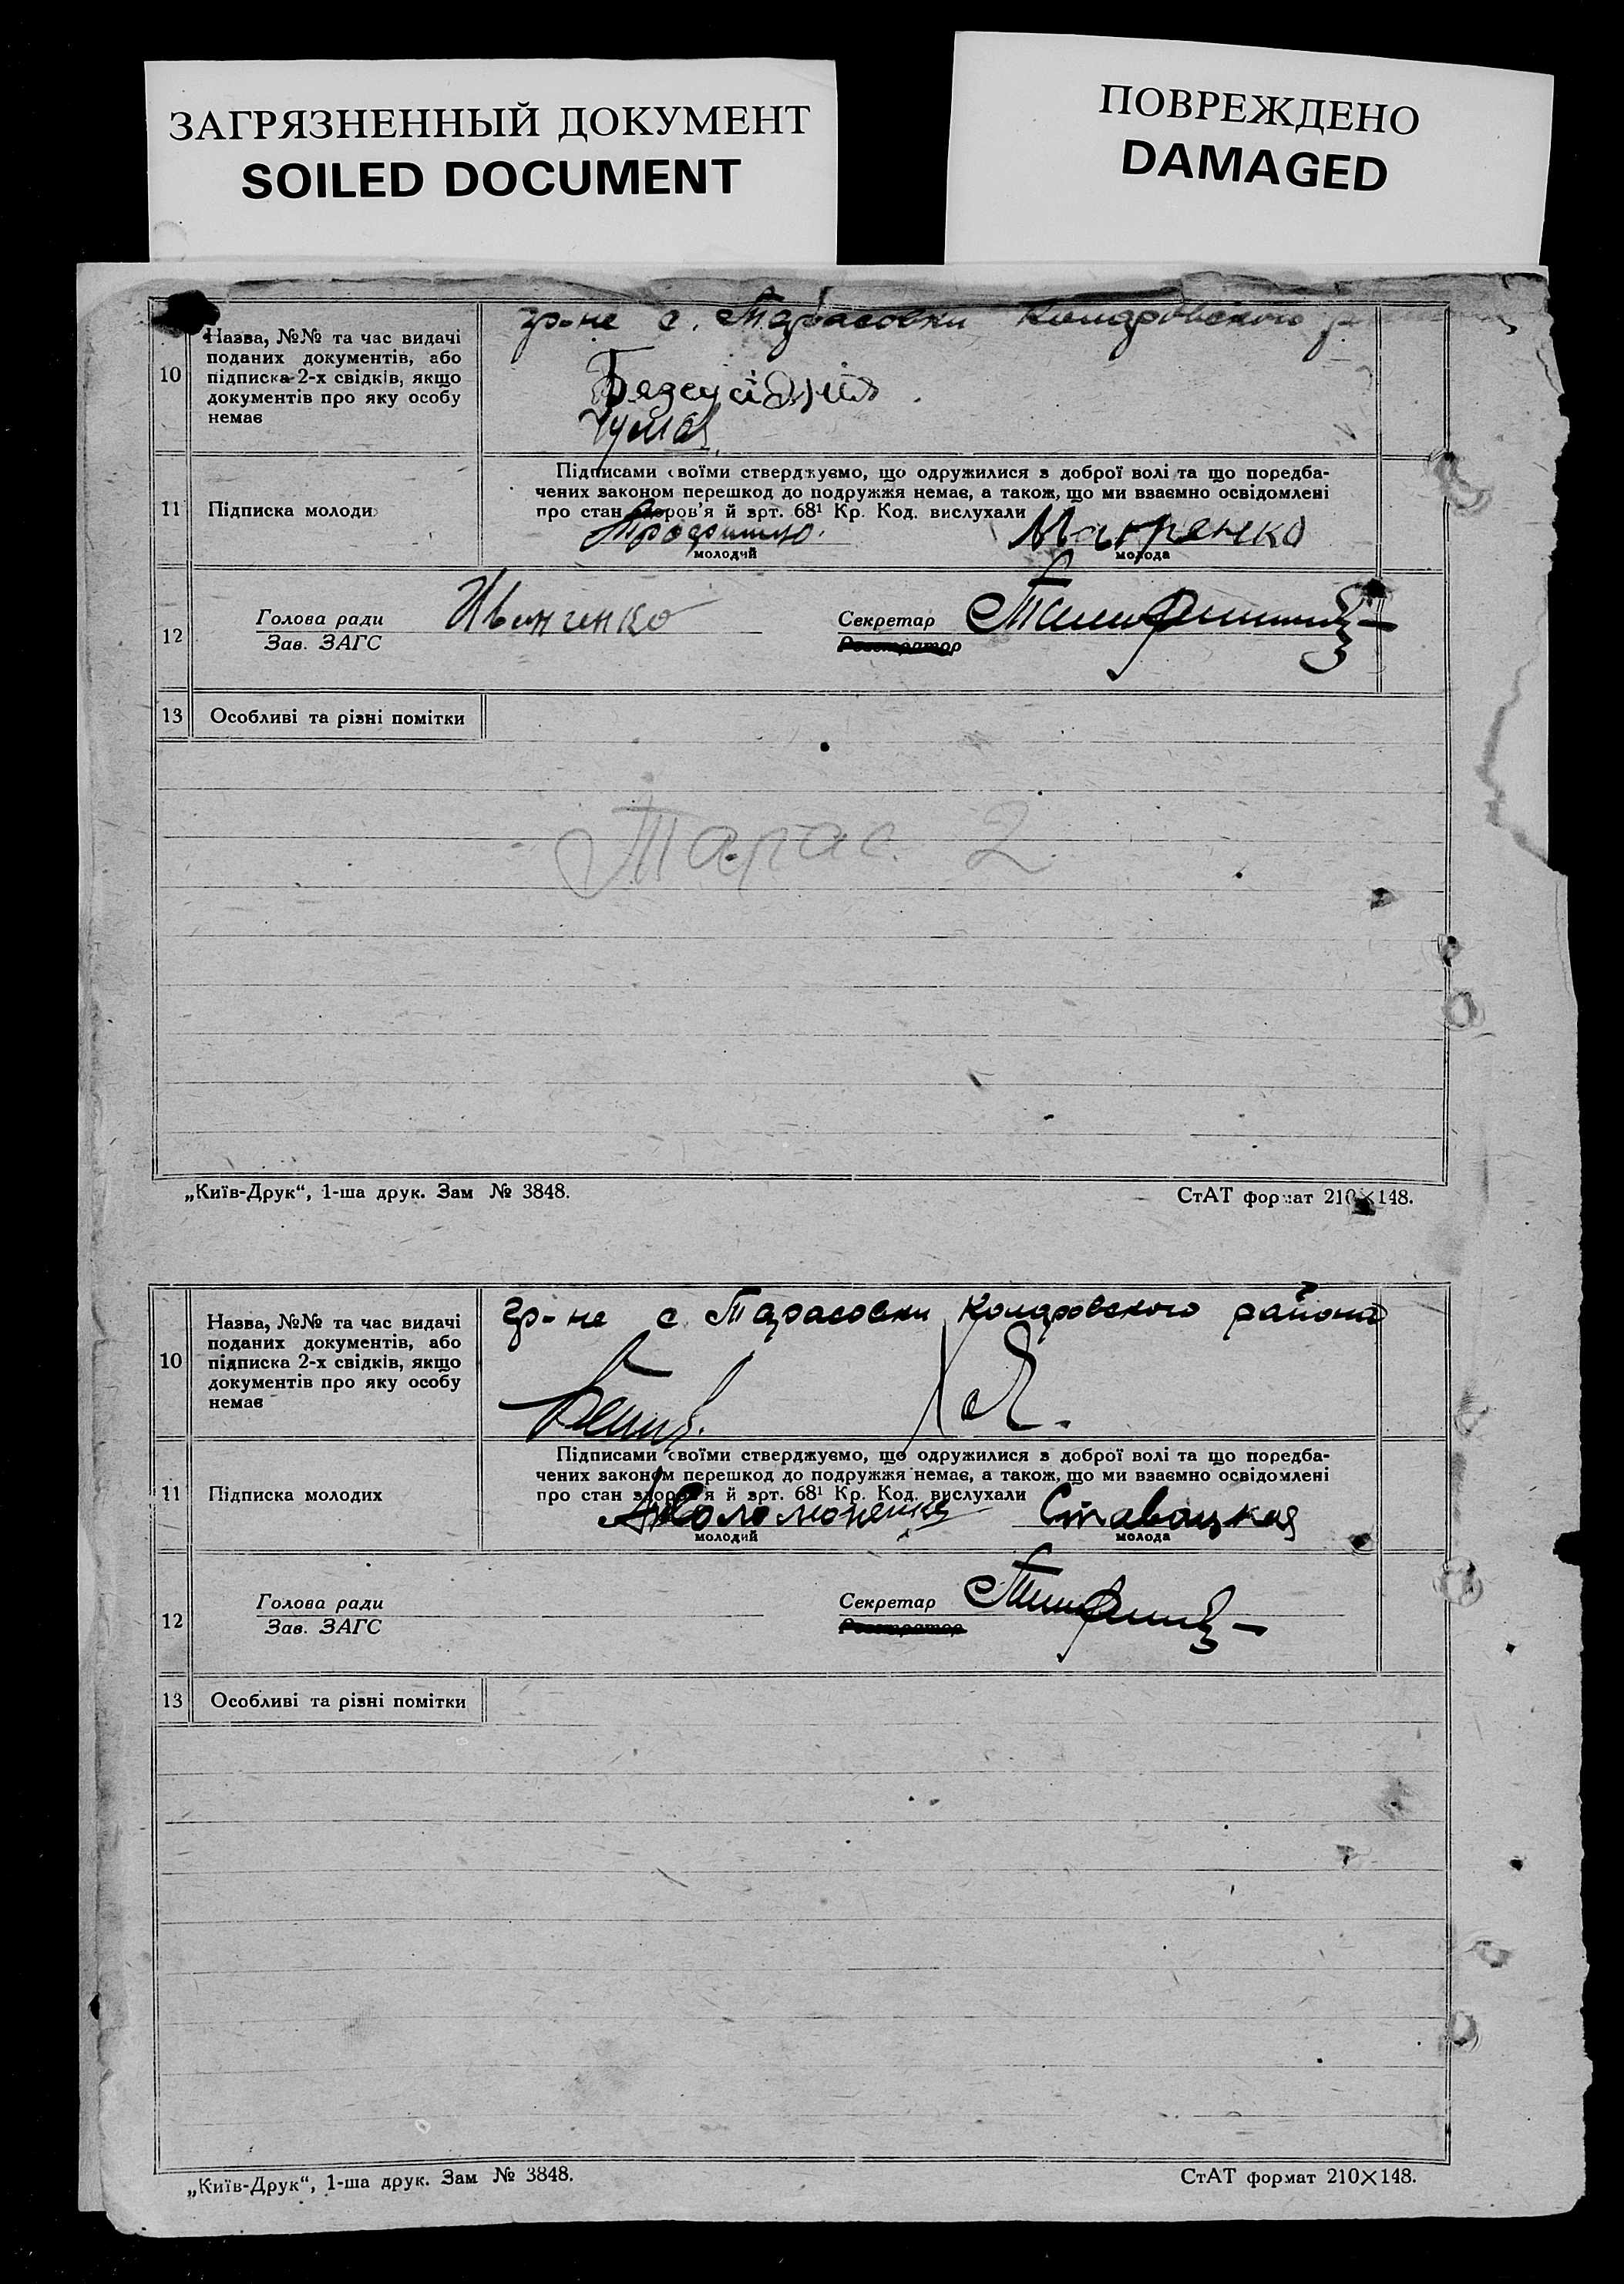 ЗАГРЯЗНЕННЫЙ ДОКУМЕНТ
SOILED DOCUMENT
ПОВРЕЖДЕНО
DAMAGED
гр-не с. Тарасовки Комаровского
10
Назва, №№ та час видачі
поданих документів, або
підписка 2-х свідків, якщо
документів про яку особу
немає
Підписами своїми стверджуємо, що одружилися з доброї волі та що поредба-
чених законом перешкод до подружжя немає, а також, що ми взаємно освідомлені
про стан здоров'я й арт. 68¹ Кр. Код. вислухали
11
Підписка молоди
молодий
молода
12
Голова ради
Иванченко
Секретар
Зав. ЗАГС
Реєстратор
13
Особливі та різні помітки
Тарас. 2
„Київ-Друк“, 1-ша друк. Зам № 3848.
СтАТ формат 210×148.
гр-не с Тарасовки Комаровского района
10
Назва, №№ та час видачі
поданих документів, або
підписка 2-х свідків, якщо
документів про яку особу
немає
Підписами своїми стверджуємо, що одружилися з доброї волі та що поредба-
чених законом перешкод до подружжя немає, а також, що ми взаємно освідомлені
про стан здоров'я й арт. 68¹ Кр. Код. вислухали
11
Підписка молодих
Ставацкая
молодий
молода
12
Голова ради
Секретар
Зав. ЗАГС
Реєстратор
13
Особливі та різні помітки
„Київ-Друк“, 1-ша друк. Зам № 3848.
СтАТ формат 210×148.